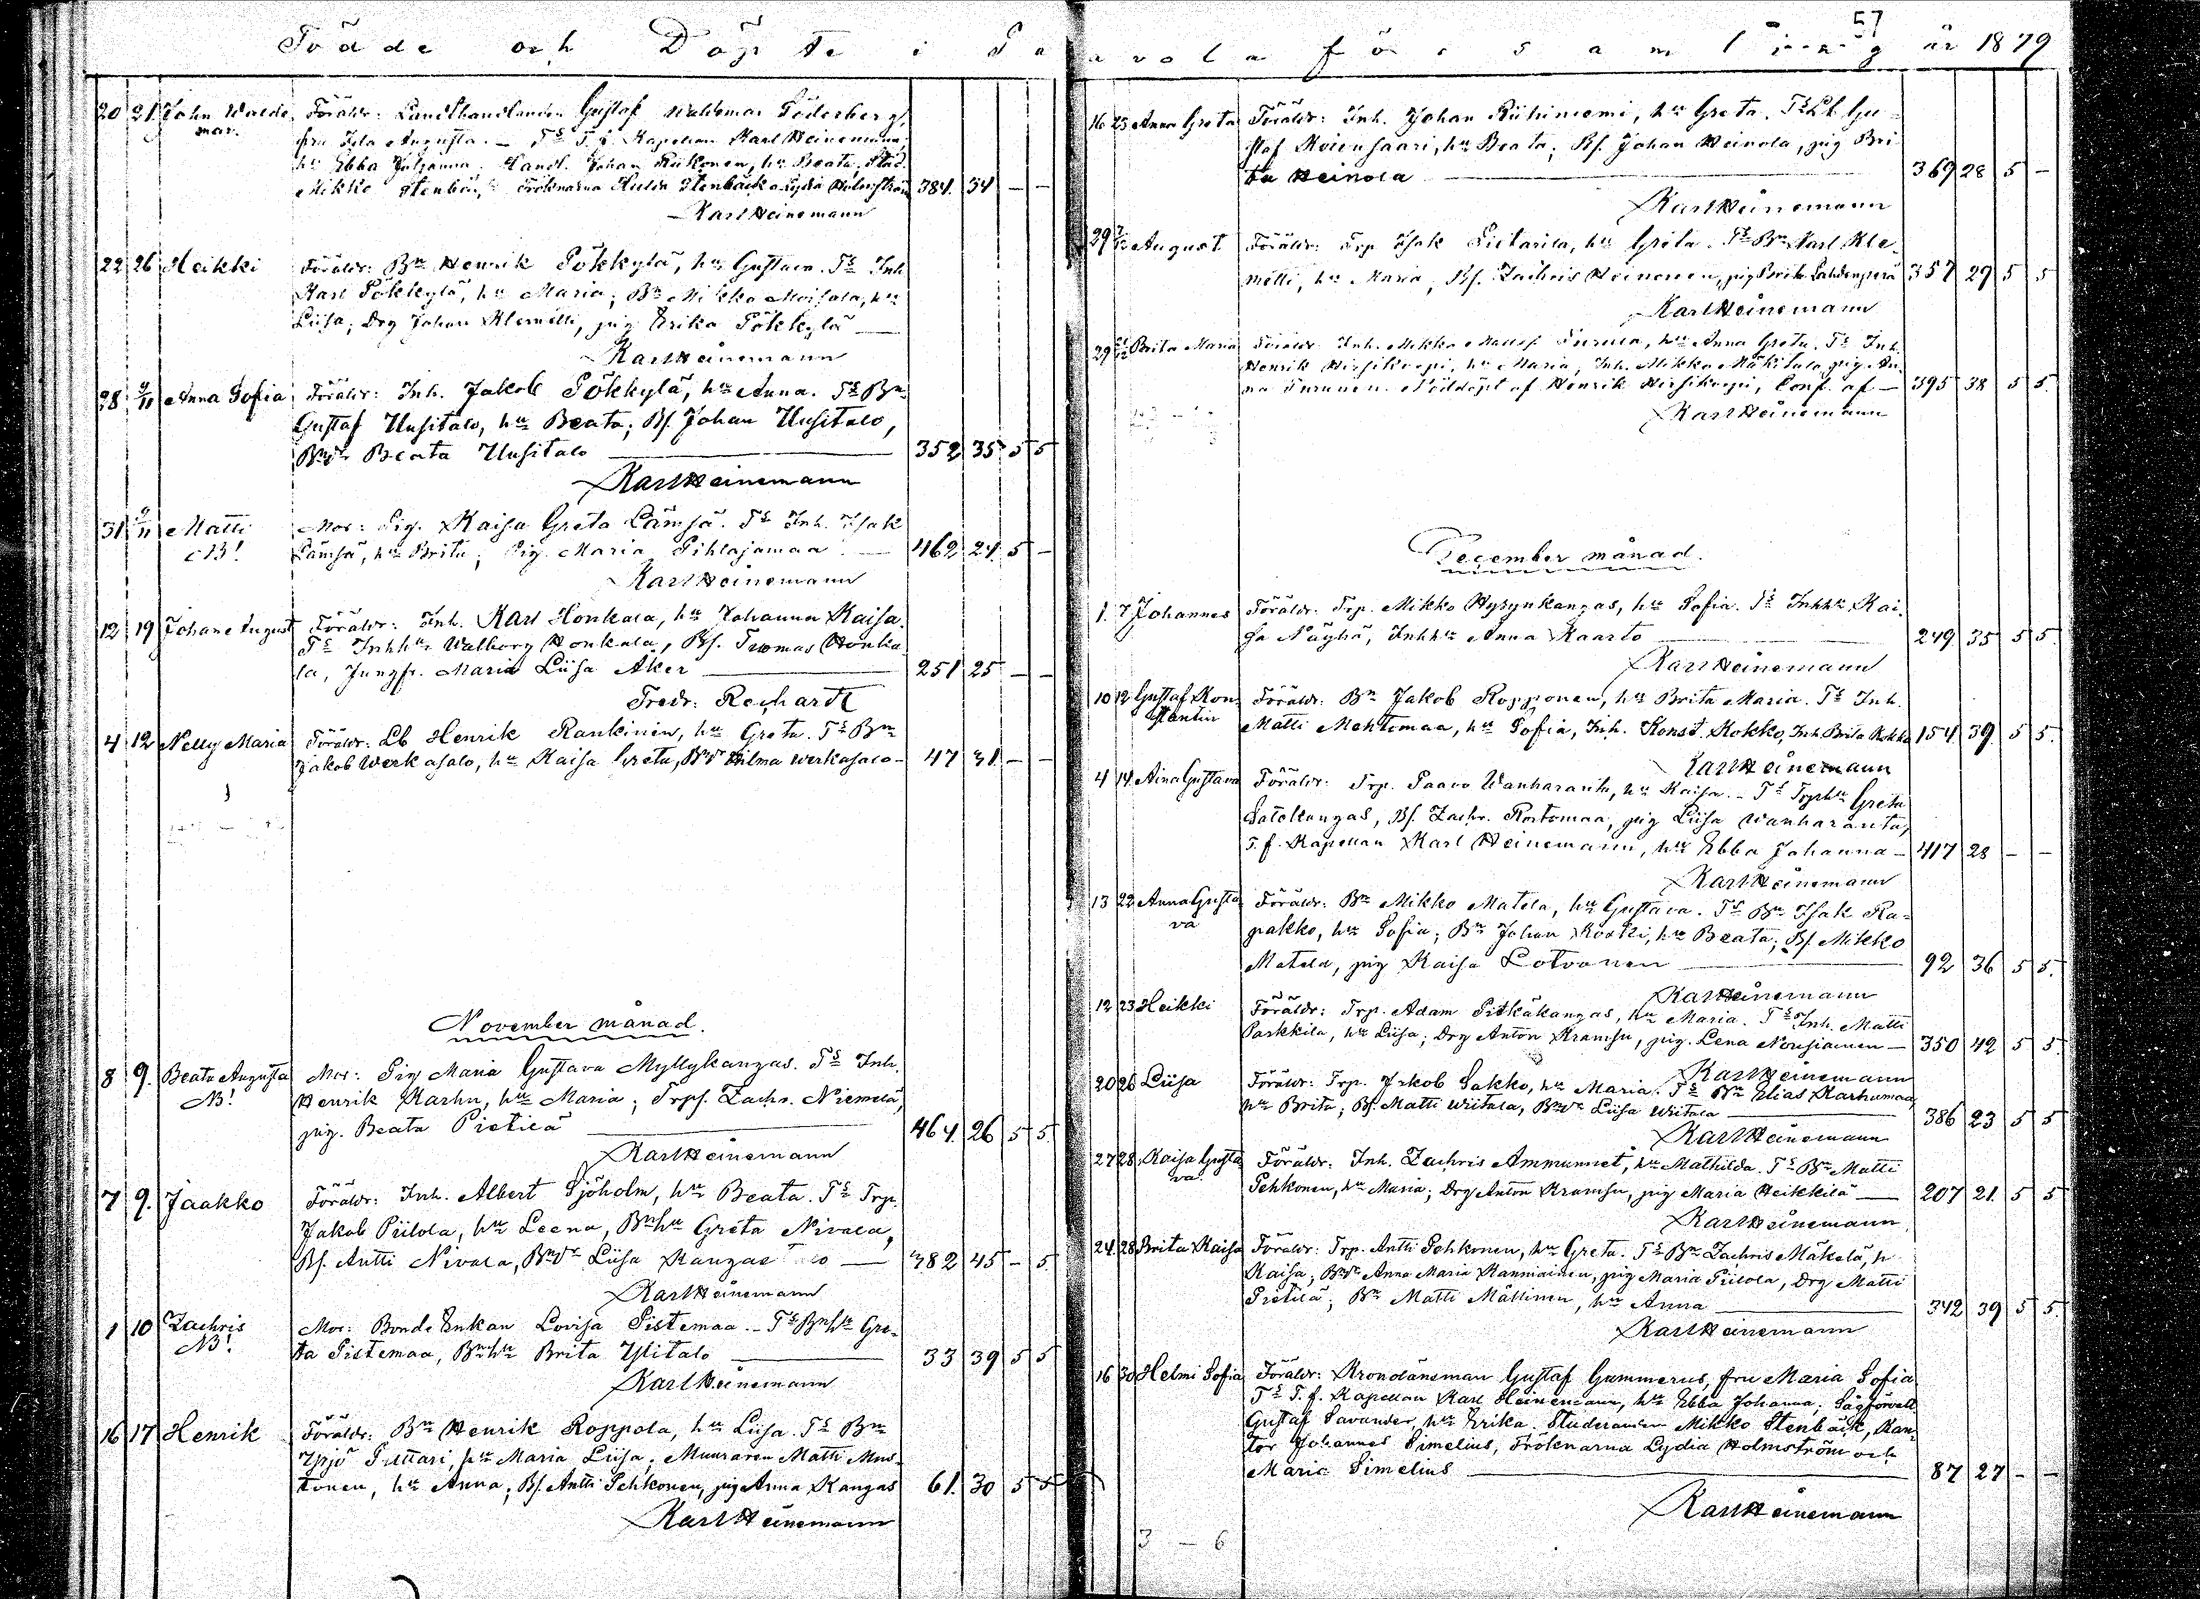 57
Födde och Döpte i Paavola församling år 1879
20 21 John Walde Föräldr: Landthandlanden Gustaf Waldemar Söderberg,
mar. fru Ida Augusta. – Ts T. f. Kapellan Karl Heinemann,
hu Ebba Johanna, Handl. Johan Riikonen, hu Beata, Stud.
Mikko Stenbäck, Fröknarna Hulda Stenbäck o Lydia Holmström 384. 34 – –
Karl Heinemann
22 26 Heikki Föräldr: Bn Henrik Pökkylä, hu Gustava. Ts Inh
Karl Pökkylä, hu Maria; Bn Mikko Moisala, hu
Liisa; Drg Johan Klemetti, pig Erika Pökkylä
Karl Heinemann
28 2/11 Anna Sofia Föräldr: Inh. Jakob Pökkylä, hu Anna. Ts Bn
Gustaf Uusitalo, hu Beata; Bs. Johan Uusitalo,
Bndr Beata Uusitalo 352 35 5 5
Karl Heinemann
31 2/11 Matti Mor: Pig. Kaisa Greta Lämsä. Ts Inh. Isak
NB! Lämsä, hu Brita; Pig. Maria Pihlajamaa 462 24. 5 –
Karl Heinemann
12 19 Johan August Föräldr: Inh. Karl Honkala, hu Johanna Kaisa.
Ts Inhhu Walborg Honkala, Bs. Tuomas Honka
la, Jungfr. Maria Liisa Aker 251 25 – –
Fredr. Rechardt
4 12 Nelly Maria Föräldr: Lb Henrik Rankinen, hu Greta. Ts Bn
Jakob Werkasalo, hu Kaisa Greta, Bndr Hilma Werkasalo – 47 31 – –
November månad.
8 9. Beata Augusta Mor: Pig Maria Gustava Myllykangas. Ts Inh.
NB! Henrik Karhu, hu Maria; Trps. Zachr. Niemelä,
pig. Beata Pietilä 464. 26 5 5
Karl Heinemann
7 9. Jaakko Föräldr: Inh. Albert Sjöholm, hu Beata. Ts Trp.
Jakob Piilola, hu Leena, Bnhu Greta Nivala,
Bs. Antti Nivala, Bndr Liisa Kangas – 382 45 – 5
Karl Heinemann
1 10 Zachris Mor: Bonde Enkan Lovisa Pistemaa. – Ts Bnhu Gre-
NB! ta Pistemaa, Bnhu Brita Ylitalo 33 39 5 5
Karl Heinemann
16 17 Henrik Föräldr: Bn Henrik Roppola, hu Liisa. Ts Bn
Yrjö Puttari, hu Maria Liisa; Muuraren Matti Mus-
tonen, hu Anna; Bs. Antti Pehkonen, pig Anna Kangas 61. 30 5 5
Karl Heinemann
16 23 Anna Greta Föräldr: Inh. Johan Riihiniemi, hu Greta. Ts Lb. Gu-
staf Koivusaari, hu Beata; Bs. Johan Heinola, pig Bri
ta Heinola 369 28 5 –
Karl Heinemann
29 7/12 August Föräldr: Trp Isak Pietarila, hu Greta. Ts Bn Karl Kle-
metti, hu Maria, Bs. Zachris Heinonen, pig Brita Lahdenperä 357 29 5 5
Karl Heinemann
29 21/12 Brita Maria Föräldr: Inh. Mikko Turunen, hu Anna Greta. Ts Inh.
Henrik Hirsikorpi, hu Maria, Inh. Mikko Mäkitalo, pig An-
na Turunen. Nöddöpt af Henrik Hirsikorpi, Conf. af – 395 38 5 5.
Karl Heinemann
December månad.
1. 7 Johannes Föräldr: Trp. Mikko Hyrynkangas, hu Sofia. Ts Inhhu Kai-
sa Näyhä, Inhhu Anna Kaarto 249 35 5 5.
Karl Heinemann
10 12 Gustaf Kon Föräldr: Bn Jakob Ropponen, hu Brita Maria. Ts Inh.
stantin Matti Mehtomaa, hu Sofia, Inh. Konst. Kokko, Inh. Brita Kokko 154. 39. 5 5.
Karl Heinemann
4 14 Aina Gustava Föräldr: Trp. Paavo Wanharanta, hu Kaisa. – Ts Trphu Greta
Salokangas, Bs. Zachr. Rostomaa, pig Liisa Wanharanta,
T. f. Kapellan Karl Heinemann, hu Ebba Johanna – 417 28 – –
Karl Heinemann
13 22 Anna Gusta Föräldr: Bn Mikko Matela, hu Gustava. Ts Bn Isak Ra-
va pakko, hu Sofia; Bn Johan Koski, hu Beata; Bs. Mikko
Matela, pig Kaisa Lotvonen 92 36 5 5.
Karl Heinemann
12 23 Heikki Föräldr: Trp. Adam Pitkäkangas, hu Maria. Ts Inh. Matti
Parkkila, hu Liisa; Drg Anton Kramsu, pig. Lena Nousiainen – 350 42 5 5.
Karl Heinemann
20 26 Liisa Föräldr: Trp. Jakob Sakko, hu Maria. Ts Bn Elias Karhumaa,
hu Brita; Bs. Matti Wiitala, Bndr Liisa Wiitala 386 23 5 5
Karl Heinemann
27 28 Kaisa Gusta Föräldr: Inh. Zachris Ammunnet, hu Mathilda. Ts Bn Matti
va Pehkonen, hu Maria; Drg Anton Kramsu, pig Maria Heikkilä – 207 21. 5 5
Karl Heinemann
24 28 Brita Kaisa Föräldr: Trp. Antti Pehkonen, hu Greta. Ts Bn Zachris Mäkelä, h
Kaisa; Bndr Anna Maria Kanniainen, pig Maria Piilola, Drg Matti
Pietilä; Bn Matti Mällinen, hu Anna 342 39 5 5.
Karl Heinemann
16 30 Helmi Sofia Föräldr: Kronolänsman Gustaf Gummerus, fru Maria Sofia
Ts T. f. Kapellan Karl Heinemann, hu Ebba Johanna; Sågförvalt
Gustaf Savander, hu Erika. Studeranden Mikko Stenbäck, Kan-
tor Johannes Simelius, Fröknarna Lydia Holmström och
Maria Simelius 87 27 – –
Karl Heinemann
3 – 6